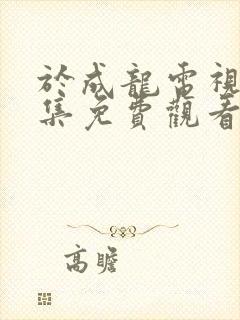 於成龍電視
集免費觀看
高瞻